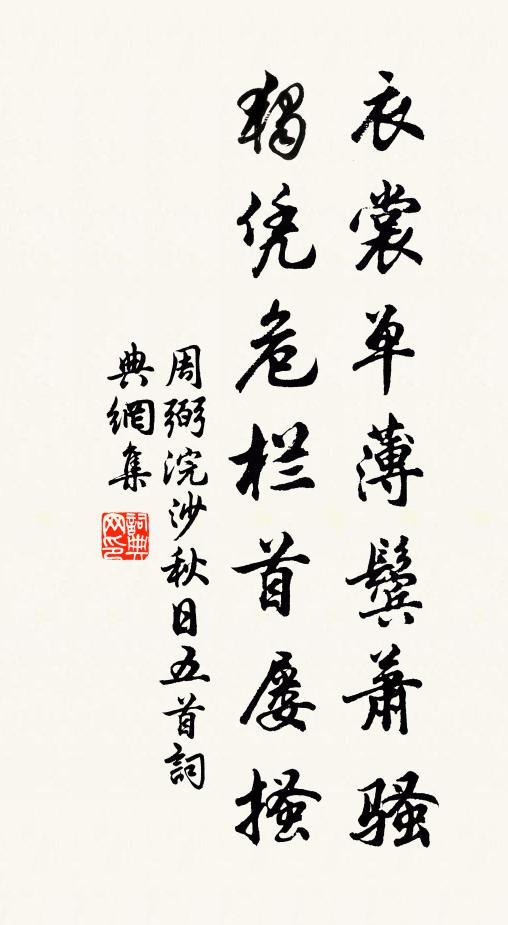 衣裳单薄鬓萧骚
独凭危栏首屡搔
周弼浣沙秋日五首词
典網集
詞典网印